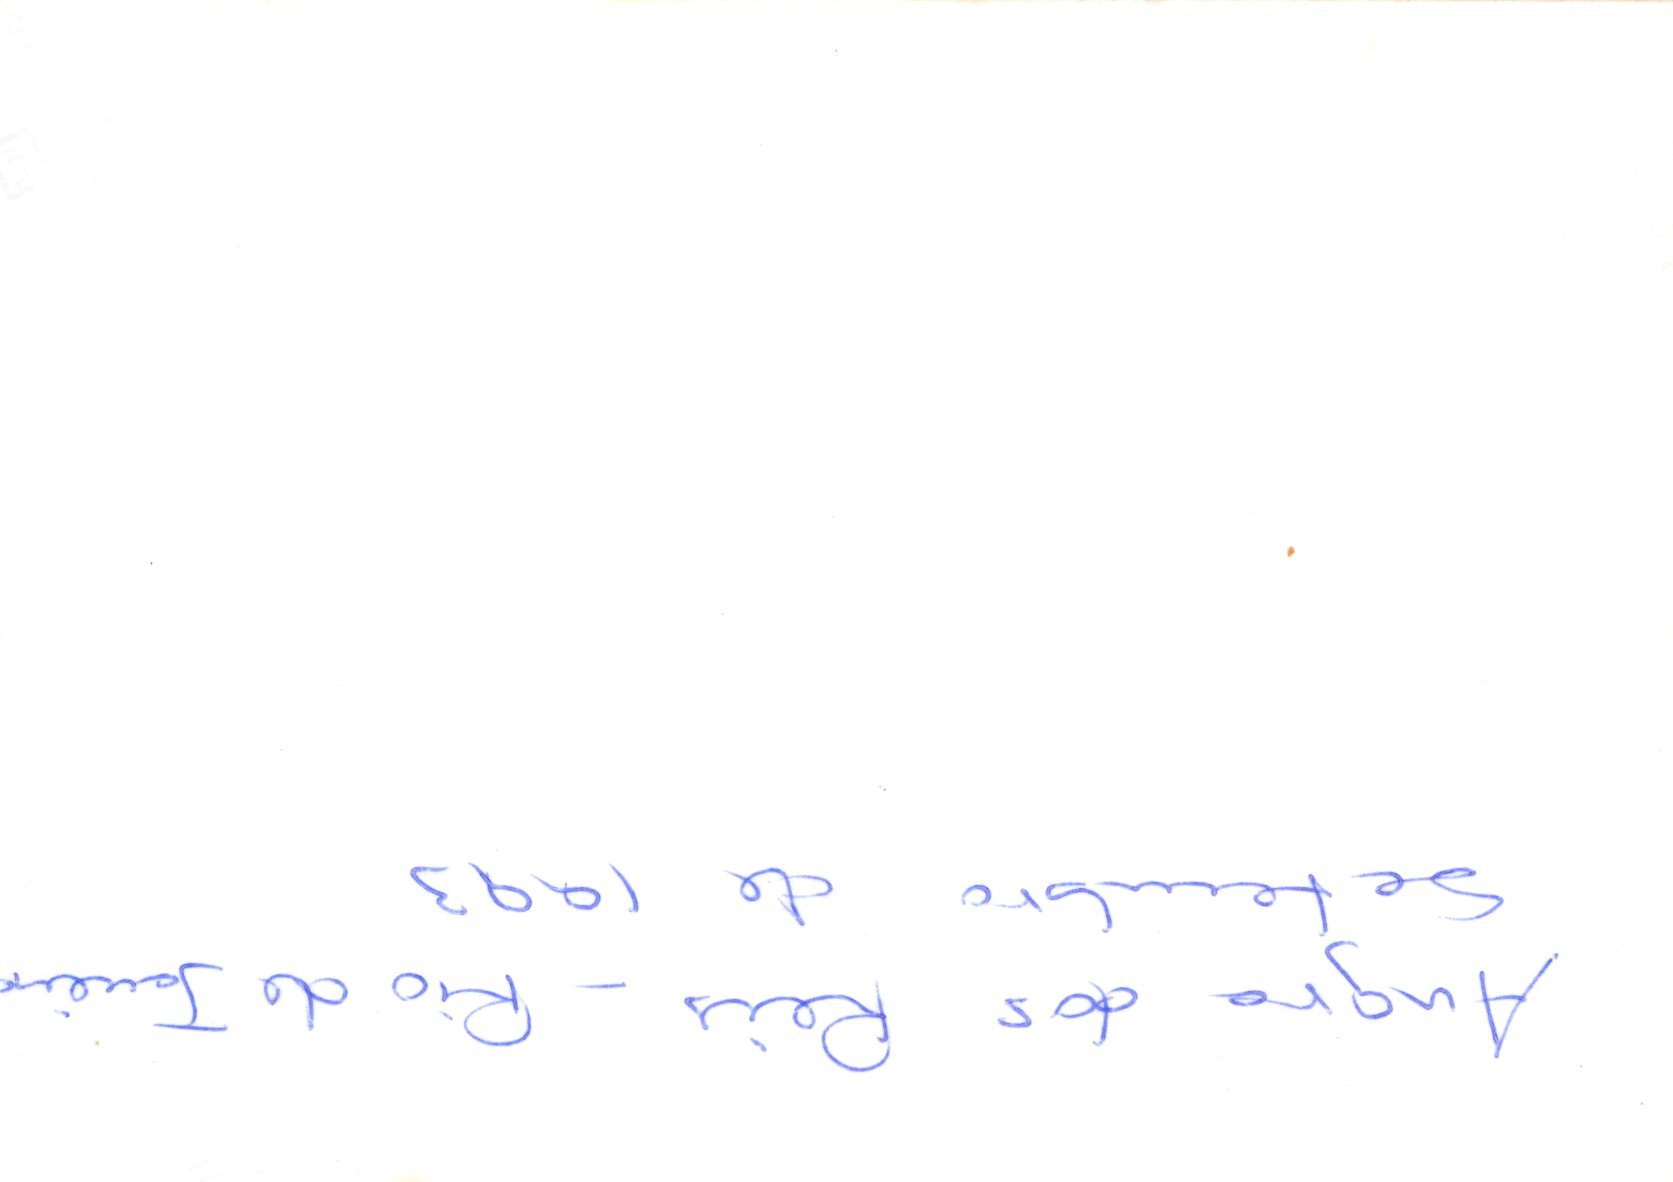 Angra dos Reis - Rio de Janeiro
Setembro de 1993